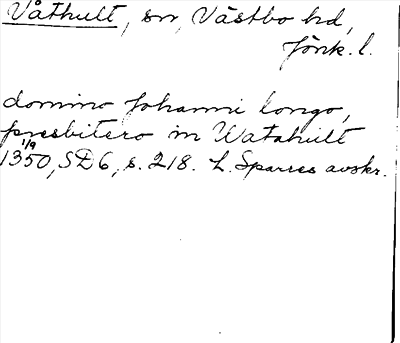 Våthult, sn, Västbo hd,
Jönk. l.
domino Johanni longo,
presbitero in Watahult
1350, 1/9 SD6, s. 218. L. Sparres avskr.